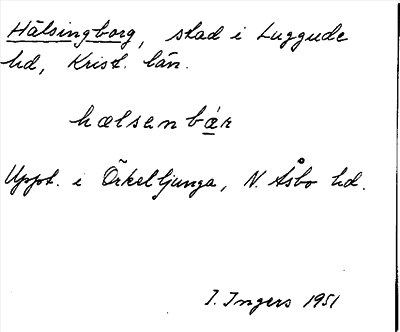 Hälsingborg, stad i Luggude
hd, Krist. län.
hælsenbár
Uppt. i Örkelljunga, N. Åsbo hd.
I. Ingers 1951